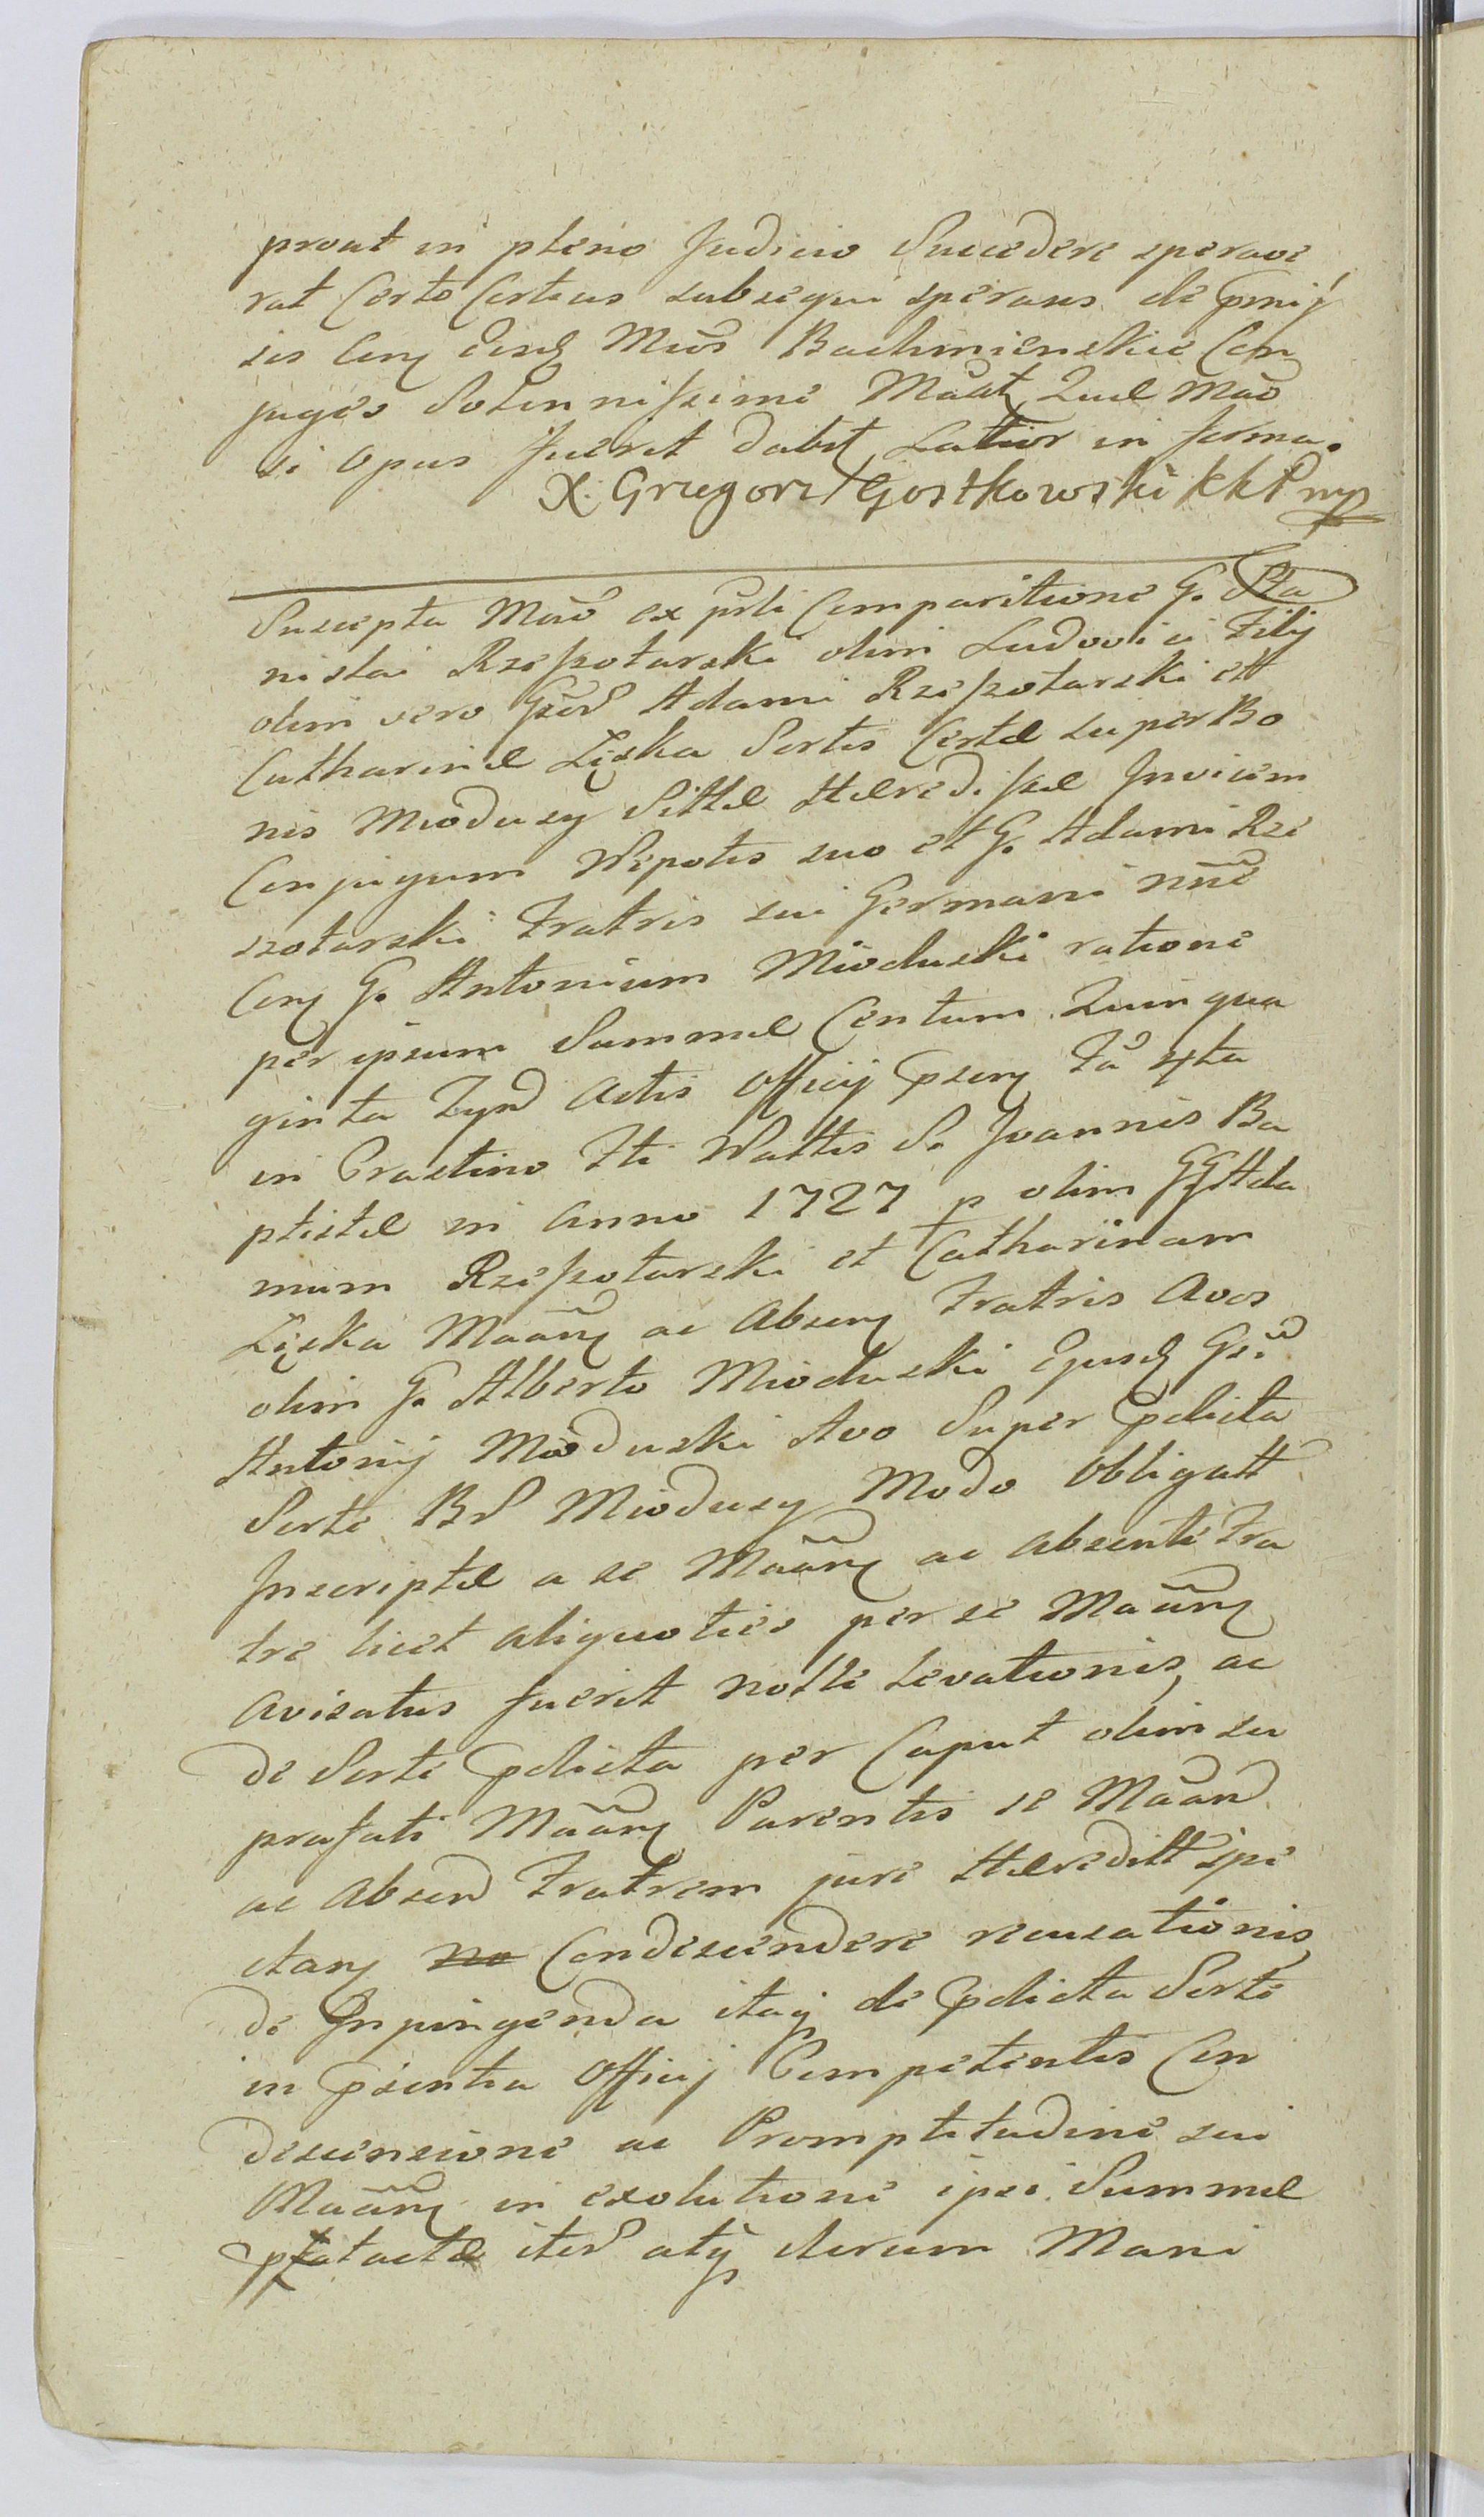 prout in pleno Judicio Succedere sperave
rat Certo Certius subsequi sperans de pmis
sis Cerq eisd Mtes Bachmienskie Con
juges Solennissime Maat Quae Mao
si opus fuerit dabit Latior in forma.
X. Grzegorz Gostkowski KKP mp
Suscepta Mao ex psli Comparitione G. Sta
nislai Rzeszotarski olim Ludovici Filij
olim vero Gsed Adami Rzeszotarski ett
Catharinae Liska Sortis Certae super Bo
nis Miodusy Sittae Haeredissae Invicem
Conjugum Nepotis suo et G. Adami Rze
szotarski Fratris sui Germani nne
Cerq G. Antonium Mioduski ratione
per ipsum Summae Centum Quinqua
ginta Tynd Actis Officij psenq Fa 4ta
in Crastino Fti Nattis S. Joannis Ba
ptistae in Anno 1727 p olim GG Ada
mum Rzeszotarski et Catharinam
Liska Maanq ac Absenq Fratris Avos
olim G. Alberto Mioduski Ejusd Gsi
Antonij Mioduski Avo Super pdicta
Sorte BS Miodusy Modo Obligatt
Inscriptae a se Maanq ac absenti Fra
tre licet aliquoties per se Maanq
avisatus fuerit nolle levationis, ac
de Sorte pdicta per Caput olim su
prafati Maanq Parentis se Maand
ac Absend Fratrem jure Haereditt spe
ctanq no Condescendere recusationis
de Inpingenda itaq de pdicta Sorte
in psentia Officij Competentis Con
descensione ac Promptitudine sui
Maanq in exolutione ipsi Summae
ptactae iteS atq iterum Mani